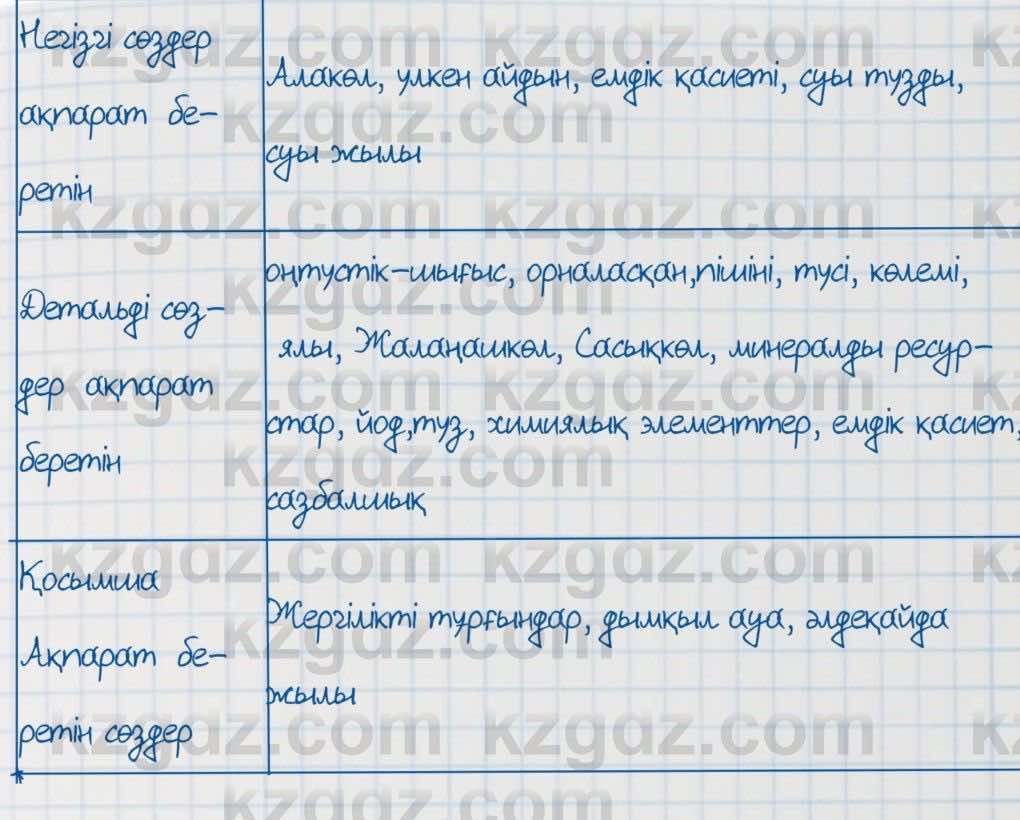 Негізгі сөздер
ақпарат бе-
ретін
Алакөл, үлкен айдын, емдік қасиеті, суы тұзды,
суы жылы
Детальді сөз-
дер ақпарат
беретін
оңтүстік-шығыс, орналасқан,пішіні, түсі, көлемі,
ялы, Жалаңашкөл, Сасықкөл, минералды ресур-
стар, йод,тұз, химиялық элементтер, емдік қасиет,
сазбалшық
Қосымша
Ақпарат бе-
ретін сөздер
Жергілікті тұрғындар, дымқыл ауа, әлдеқайда
жылы
kzgdz.com